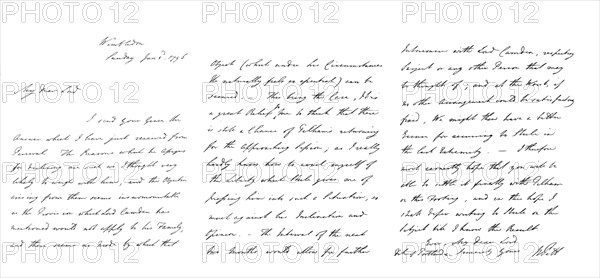 Wimbledon
Sunday Jan. 3. 1796
My Dear Lord
I send your Grace the
Answer which I have just received from
Perceval. The Reasons which he assigns
for declining are such as I thought very
likely to weigh with him, and the Objection
arising from them seems insurmountable
as the Provision which Lord Camden has
mentioned would not apply to his Family,
and there seems no mode by which that
Object (which under his Circumstances
He naturally feels as essential) can be
secured. This being the Case, it is
a great Relief to me to think that there
is still a Chance of Pelham's returning
for the approaching Session; as I really
hardly know how to avail myself of
the Liberty which Steele gives me of
pressing him into such a Situation, so
much against his Inclination and
Opinion. - The Interval of the next
two months would allow for further
Intercourse with Lord Camden, respecting
Serjeant or any other Person that may
be thought of; and at the Worst, if
no other arrangement could be satisfactorily
fixed, We might then have a better
Ground for recurring to Steele in
the last Extremity. - I therefore
most earnestly hope that you will be
able to settle it finally with Pelham
on this Footing, and in this hope I
shall defer writing to Steele on the
Subject till I know the Result.
Yours, My Dear Lord
Sincerely Yours W Pitt
PHOTO12